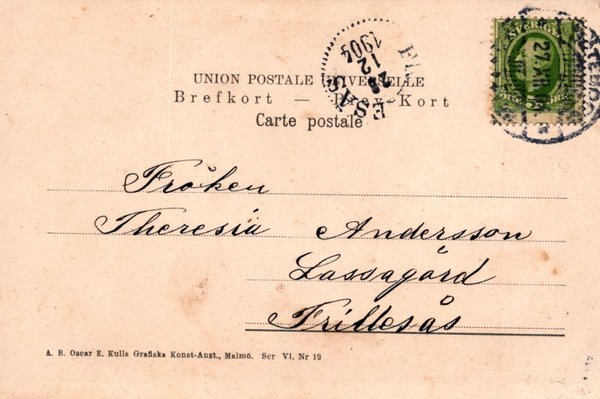 UNION POSTALE UNIVERSELLE
Brefkort — Brev-Kort
Carte postale
28
12
1904
SVERIGE
27.XII
Fröken
Theresia Andersson
Lassagård
Frillesås
A. B. Oscar E. Kulls Grafiska Konst-Anst., Malmö. Ser VI. Nr 19